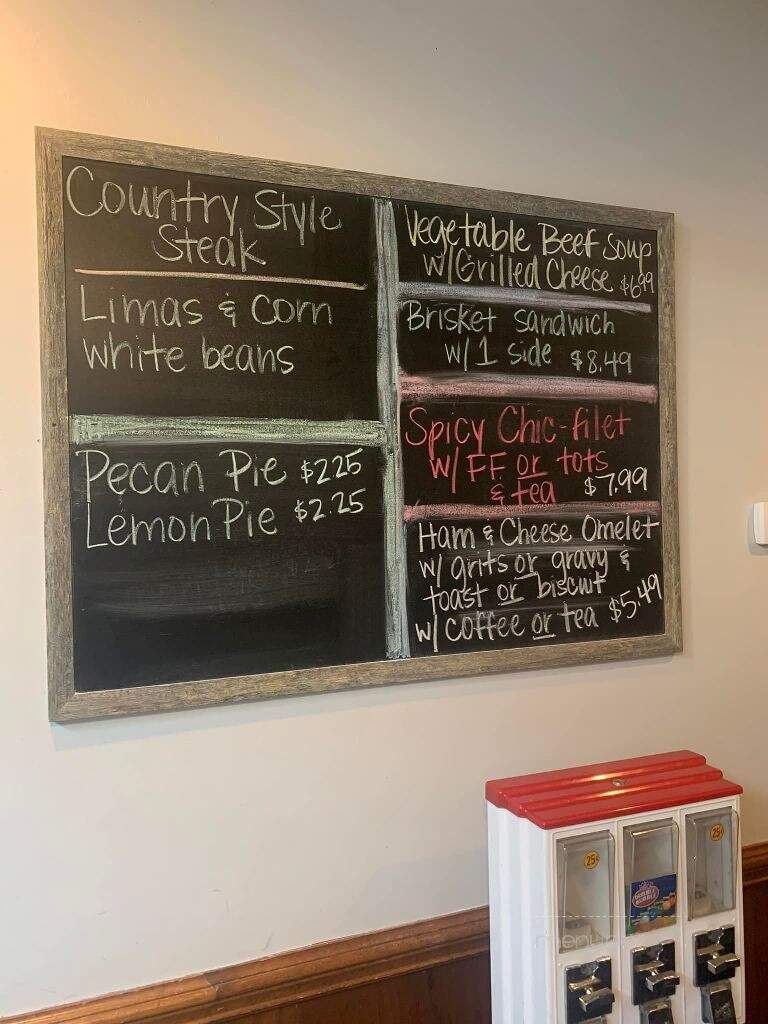 Country Style
Steak
Limas & Corn
white beans
Pecan Pie $2.25
Lemon Pie $2.25
Vegetable Beef Soup
w/Grilled Cheese $6.99
Brisket Sandwich
w/ 1 side $8.49
Spicy Chic-filet
w/ FF or tots
& tea $7.99
Ham & Cheese Omelet
w/ grits or gravy &
toast or biscuit
w/ coffee or tea $5.49
25¢
25¢
DUBBLE
BUBBLE